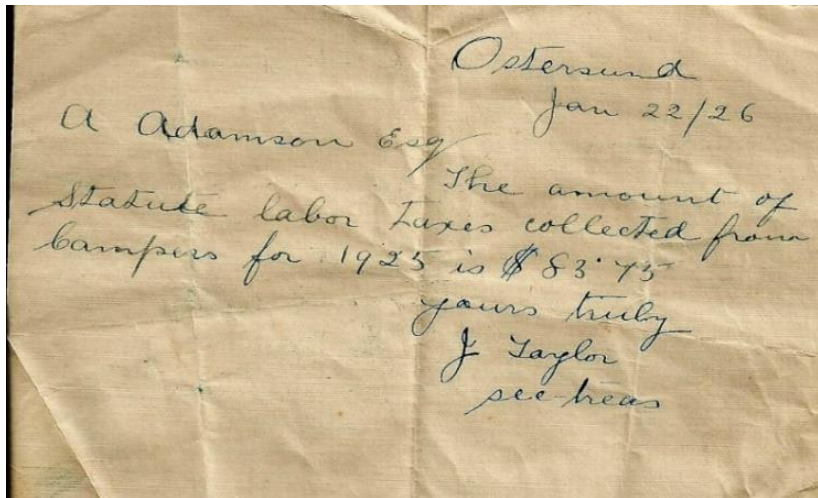 Ostersund
Jan 22/26
A Adamson Esq
The amount of
Statute labor taxes collected from
Campers for 1925 is $83.75
yours truly
J Taylor
sec-treas